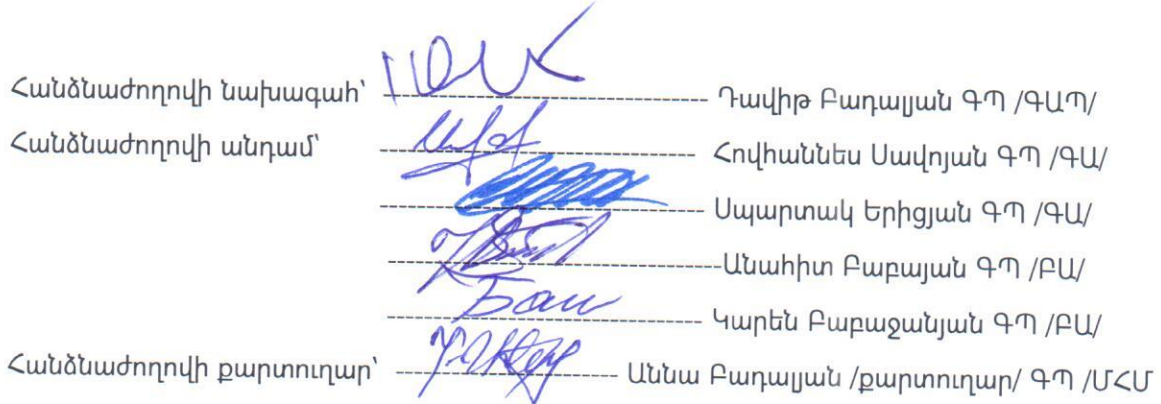 Հանձնաժողովի նախագահ՝ ---------- Դավիթ Բադալյան ԳՊ /ԳԱՊ/
Հանձնաժողովի անդամ՝ ---------- Հովհաննես Սավոյան ԳՊ /ԳԱ/
---------- Սպարտակ Երիցյան ԳՊ /ԳԱ/
----------Անահիտ Բաբայան ԳՊ /ԲԱ/
---------- Կարեն Բաբաջանյան ԳՊ /ԲԱ/
Հանձնաժողովի քարտուղար՝ ---------- Աննա Բադալյան /քարտուղար/ ԳՊ /ՄՀՄ